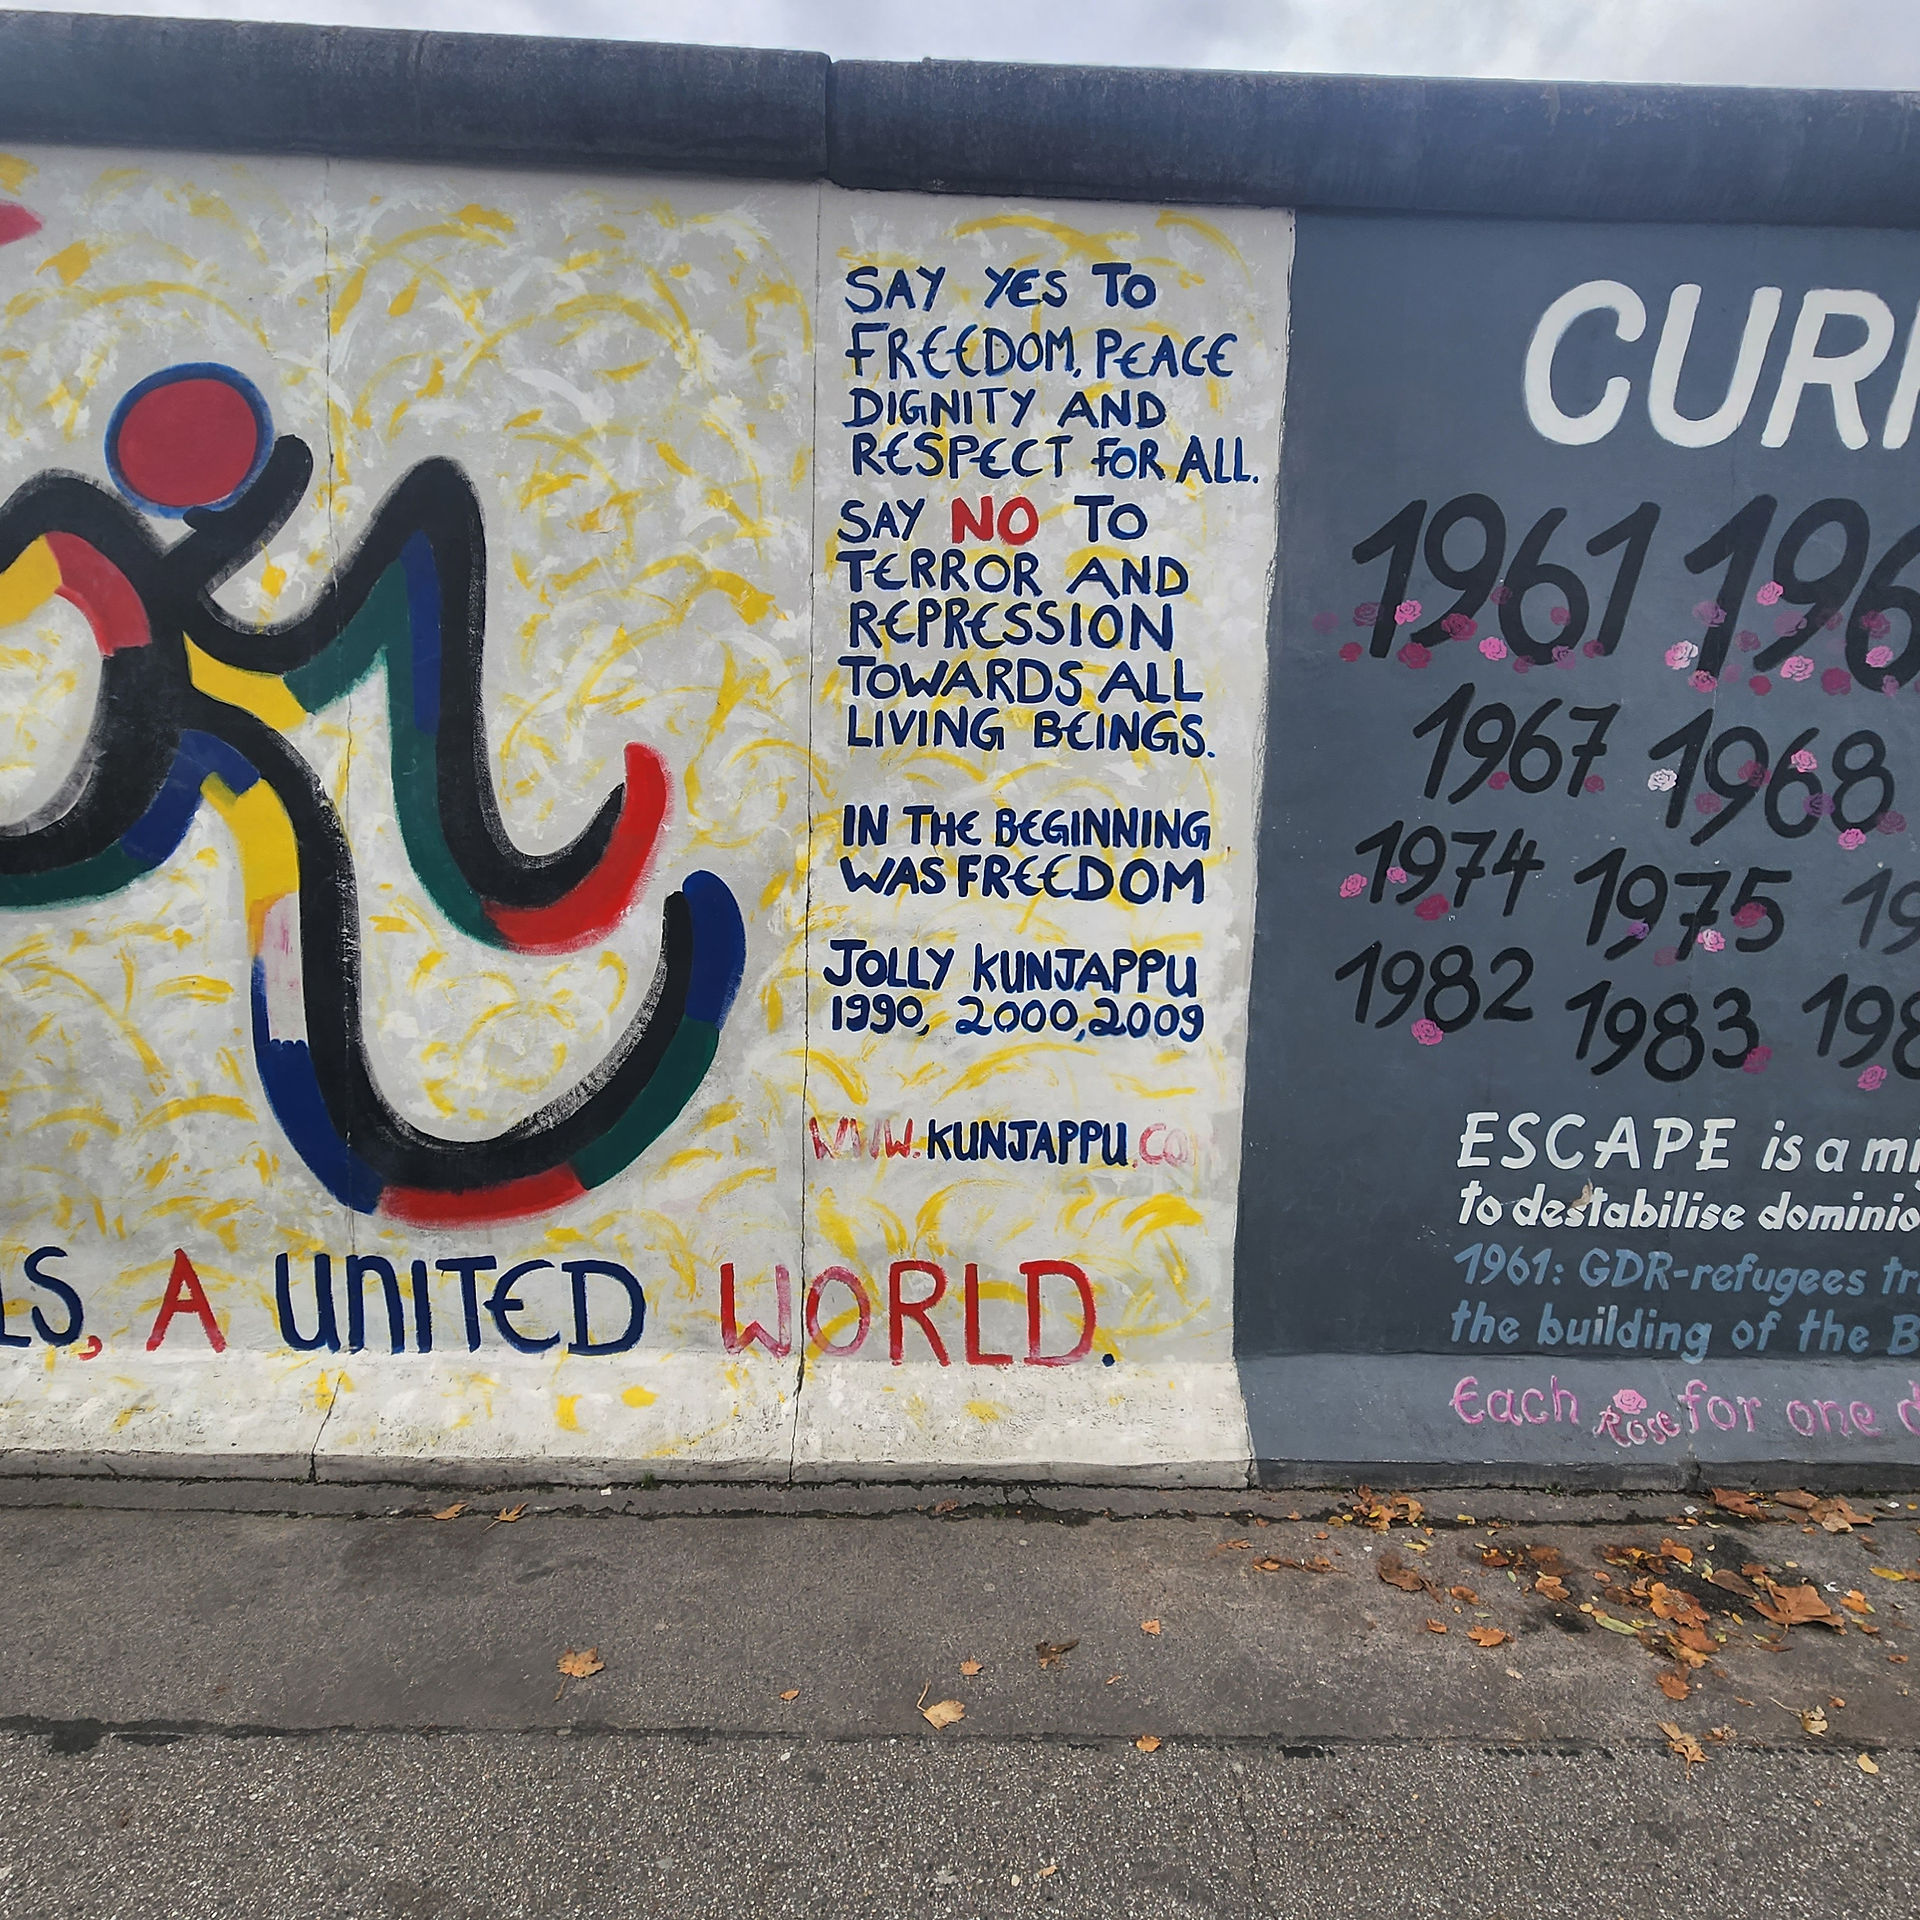 SAY YES TO
FREEDOM, PEACE
DIGNITY AND
RESPECT FOR ALL.
SAY NO TO
TERROR AND
REPRESSION
TOWARDS ALL
LIVING BEINGS.
IN THE BEGINNING
WAS FREEDOM
JOLLY KUNJAPPU
1990, 2000, 2009
WWW.KUNJAPPU.CO
LS, A UNITED WORLD.
CUR
1961 196
1967 1968
1974 1975 19
1982 1983 198
ESCAPE is a m
to destabilise dominio
1961: GDR-refugees tr
the building of the B
Each Rose for one d